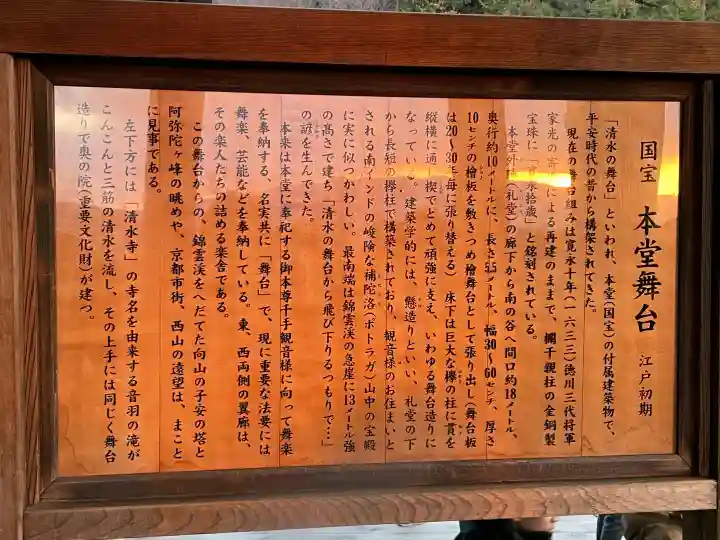 国宝 本堂舞台 江戸初期
「清水の舞台」といわれ、本堂(国宝)の付属建築物で、
平安時代の昔から構架されてきた。
現在の舞台組みは寛永十年(一六三三)徳川三代将軍
家光の寄進による再建のままで、欄干親柱の金銅製
宝珠に「寛永拾歳」と銘刻されている。
本堂外陣(礼堂)の廊下から南の谷へ間口約18メートル、
奥行約10メートルに、長さ5.5メートル、幅30~60センチ、厚さ
10センチの檜板を敷きつめ檜舞台として張り出し(舞台板
は20~30年毎に張り替える) 床下は巨大な欅の柱に貫を
縦横に通し楔でとめて頑強に支え、いわゆる舞台造りに
なっている。建築学的には、懸造りといい、礼堂の下
から長短の欅柱で構築されており、観音様のお住まいと
される南インドの峻険な補陀洛(ポトラガ)山中の宝殿
に実に似つかわしい。最南端は錦雲渓の急崖に13メートル強
の高さで建ち「清水の舞台から飛び下りるつもりで…」
の諺を生んできた。
本来は本堂に奉祀する御本尊千手観音様に向って舞楽
を奉納する、名実共に「舞台」で、現に重要な法要には
舞楽、芸能などを奉納している。東、西両側の翼廊は、
その楽人たちの詰める楽舎である。
この舞台からの、錦雲渓をへだてた向山の子安の塔と
阿弥陀ヶ峰の眺めや、京都市街、西山の遠望は、まこと
に見事である。
左下方には「清水寺」の寺名を由来する音羽の滝が
こんこんと三筋の清水を流し、その上手には同じく舞台
造りで奥の院(重要文化財)が建つ。